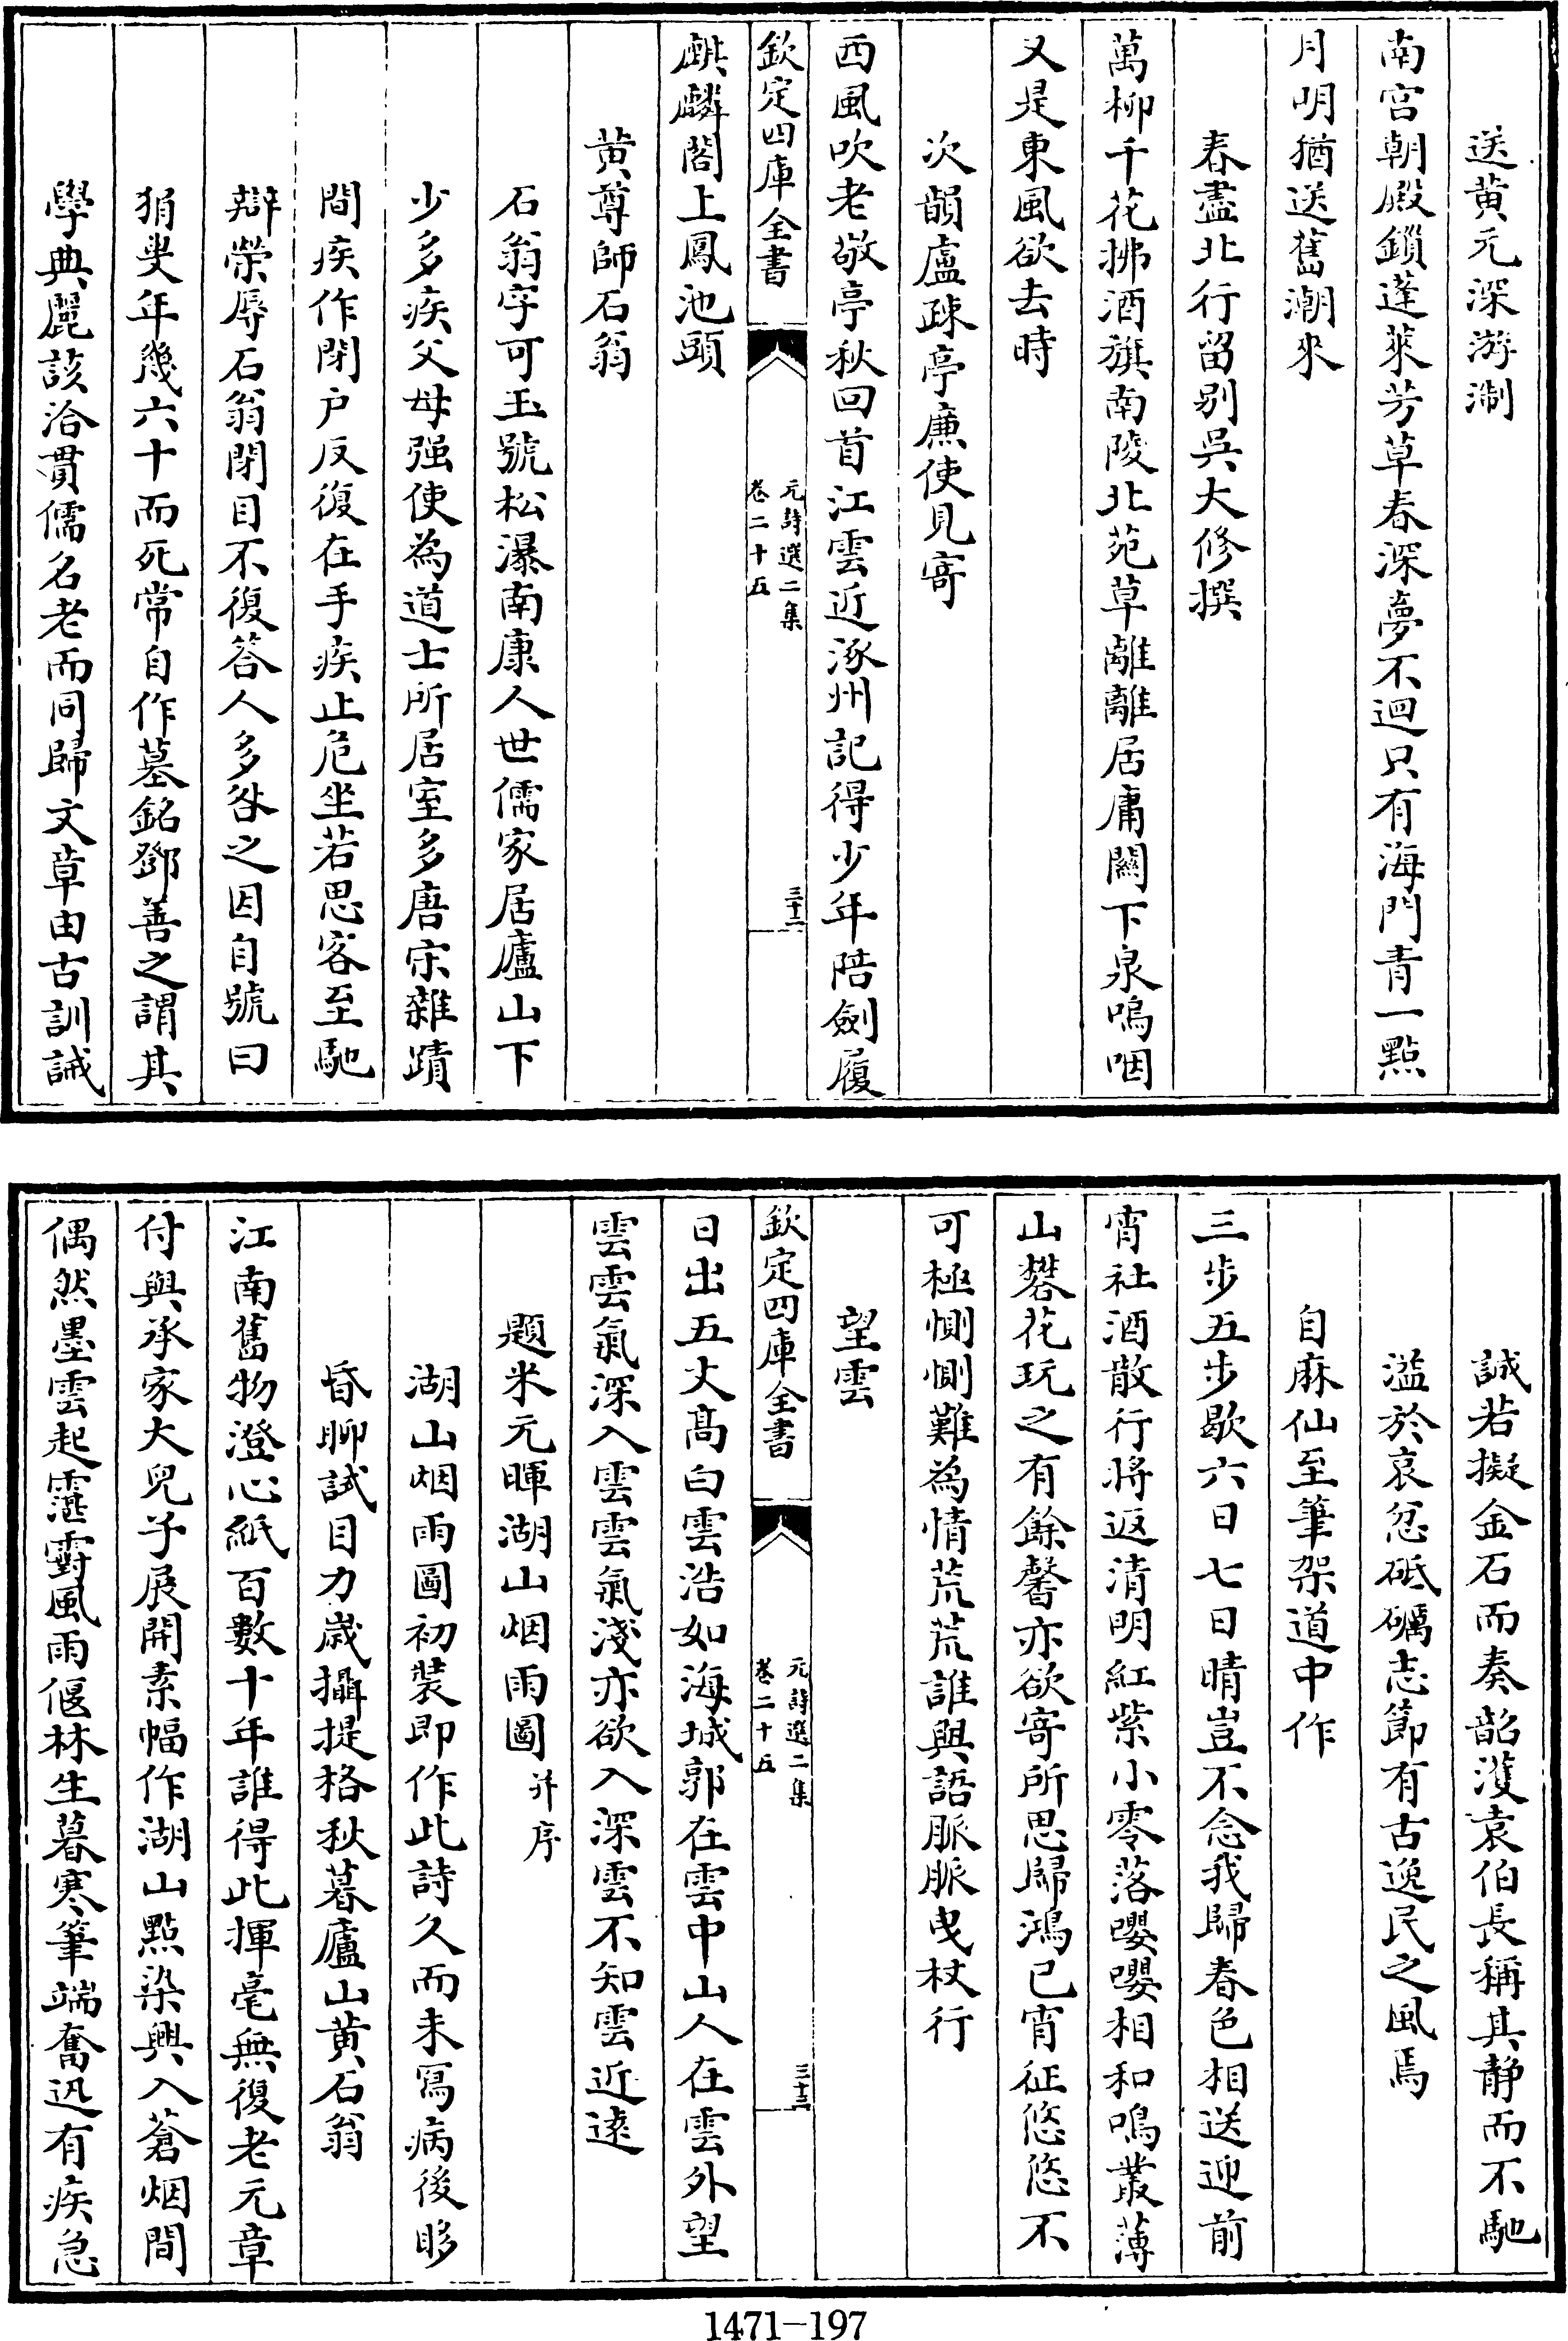 送黄元深游淛
南宫朝殿鎖蓬萊芳草春深夢不迴只有海門青一點
月明猶送舊潮來
春盡北行留别吳大修撰
萬柳千花拂酒旗南陵北苑草離離居庸闗下泉嗚咽
又是東風欲去時
次韻盧疎亭㢘使見寄
西風吹老敬亭秋回首江雲近涿州記得少年陪劍履
欽定四庫全書
元詩選二集
卷二十五
三十二
麒麟閣上鳳池頭
黄尊師石翁
石翁字可玉號松瀑南康人世儒家居廬山下
少多疾父母强使為道士所居室多唐宋雜蹟
間疾作閉户反復在手疾止危坐若思客至馳
辯榮辱石翁閉目不復答人多咎之因自號曰
狷叟年幾六十而死常自作墓銘鄧善之謂其
學典麗該洽貫儒名老而同歸文章由古訓誡
誠若擬金石而奏韶濩袁伯長稱其静而不馳
溢於哀忿砥礪志節有古逸民之風焉
自麻仙至筆架道中作
三步五步歇六日七日晴豈不念我歸春色相送迎前
宵社酒散行將返清明紅紫小零落嚶嚶相和鳴叢薄
山礬花玩之有餘馨亦欲寄所思歸鴻已宵征悠悠不
可極惻惻難為情荒荒誰與語脈脈曳杖行
望雲
欽定四庫全書
元詩選二集
卷二十五
三十三
日出五丈髙白雲浩如海城郭在雲中山人在雲外望
雲雲氣深入雲雲氣淺亦欲入深雲不知雲近逺
題米元暉湖山烟雨圖并序
湖山烟雨圖初裝即作此詩久而未寫病後眵
昏聊試目力嵗攝提格秋暮廬山黄石翁
江南舊物澄心紙百數十年誰得此揮毫無復老元章
付與承家大兒子展開素幅作湖山點染興入蒼烟間
偶然墨雲起霮䨴風雨偃林生暮寒筆端奮迅有疾急
1471-197